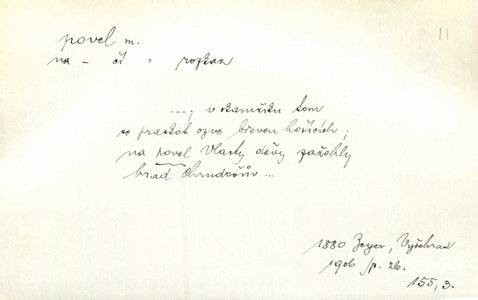 11
povel m.
na - čí = rozkaz
---; v okamžiku tom
se praskot ozve břeven hořících;
na povel Vlasty děvy zažehly
hrad
1880 Zeyer, Vyšehrad
1906 /p. 26.
155, 3.